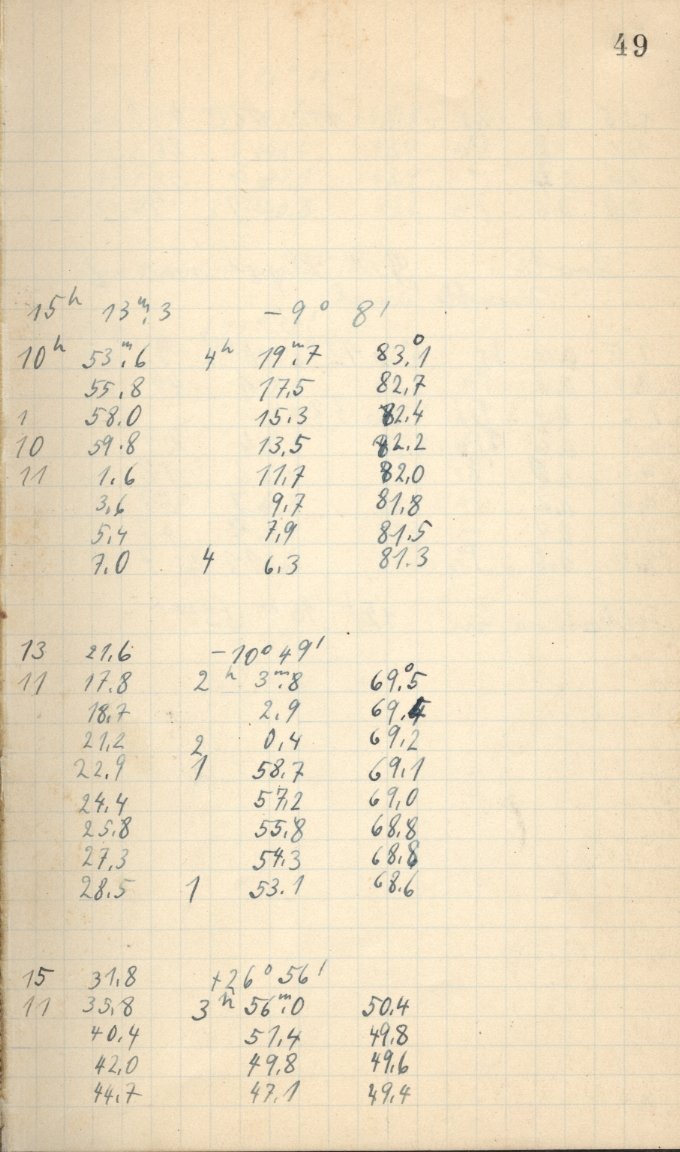 49
15ʰ 13ᵐ.3 -9° 8'
10ʰ 53ᵐ.6 4ʰ 19ᵐ.7 83°.1
55.8 17.5 82.7
1 58.0 15.3 82.4
10 59.8 13.5 82.2
11 1.6 11.7 82.0
3.6 9.7 81.8
5.4 7.9 81.5
7.0 4 6.3 81.3
13 21.6 -10° 49'
11 17.8 2ʰ 3ᵐ.8 69°.5
18.7 2.9 69.4
21.2 2 0.4 69.2
22.9 1 58.7 69.1
24.4 57.2 69.0
25.8 55.8 68.8
27.3 54.3 68.8
28.5 1 53.1 68.6
15 31.8 +26° 56'
11 35.8 3ʰ 56ᵐ.0 50.4
40.4 51.4 49.8
42.0 49.8 49.6
44.7 47.1 49.4